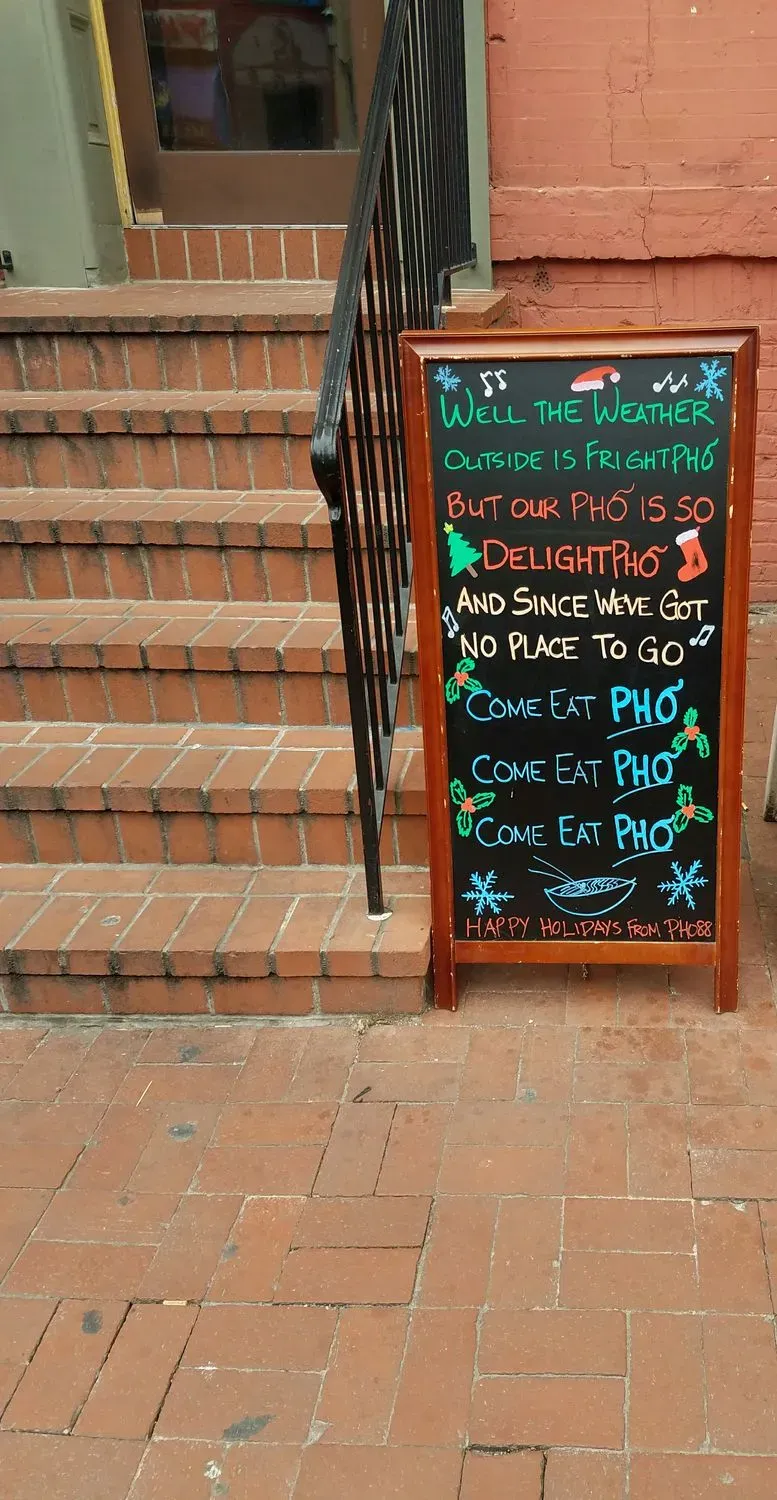 WELL THE WEATHER
OUTSIDE IS FRIGHTPHỞ
BUT OUR PHỞ IS SO
DELIGHTPHỞ
AND SINCE WE'VE GOT
NO PLACE TO GO
COME EAT PHỞ
COME EAT PHỞ
COME EAT PHỞ
HAPPY HOLIDAYS FROM PHO88